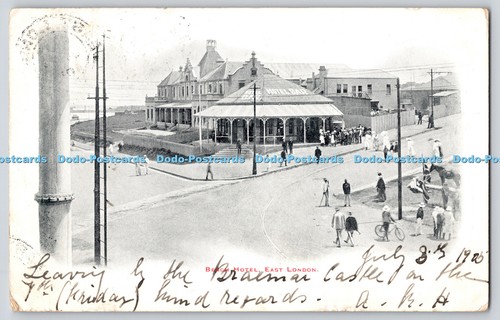 HOTEL BEACH
Dodo-Postcards Dodo-Postcards Dodo-Postcards Dodo-Postcards Dodo-Postcards
BEACH HOTEL, EAST LONDON.
July 3rd 1905
Leaving by the Braemar Castle for on the
7th (Friday) kind regards. A. R. H